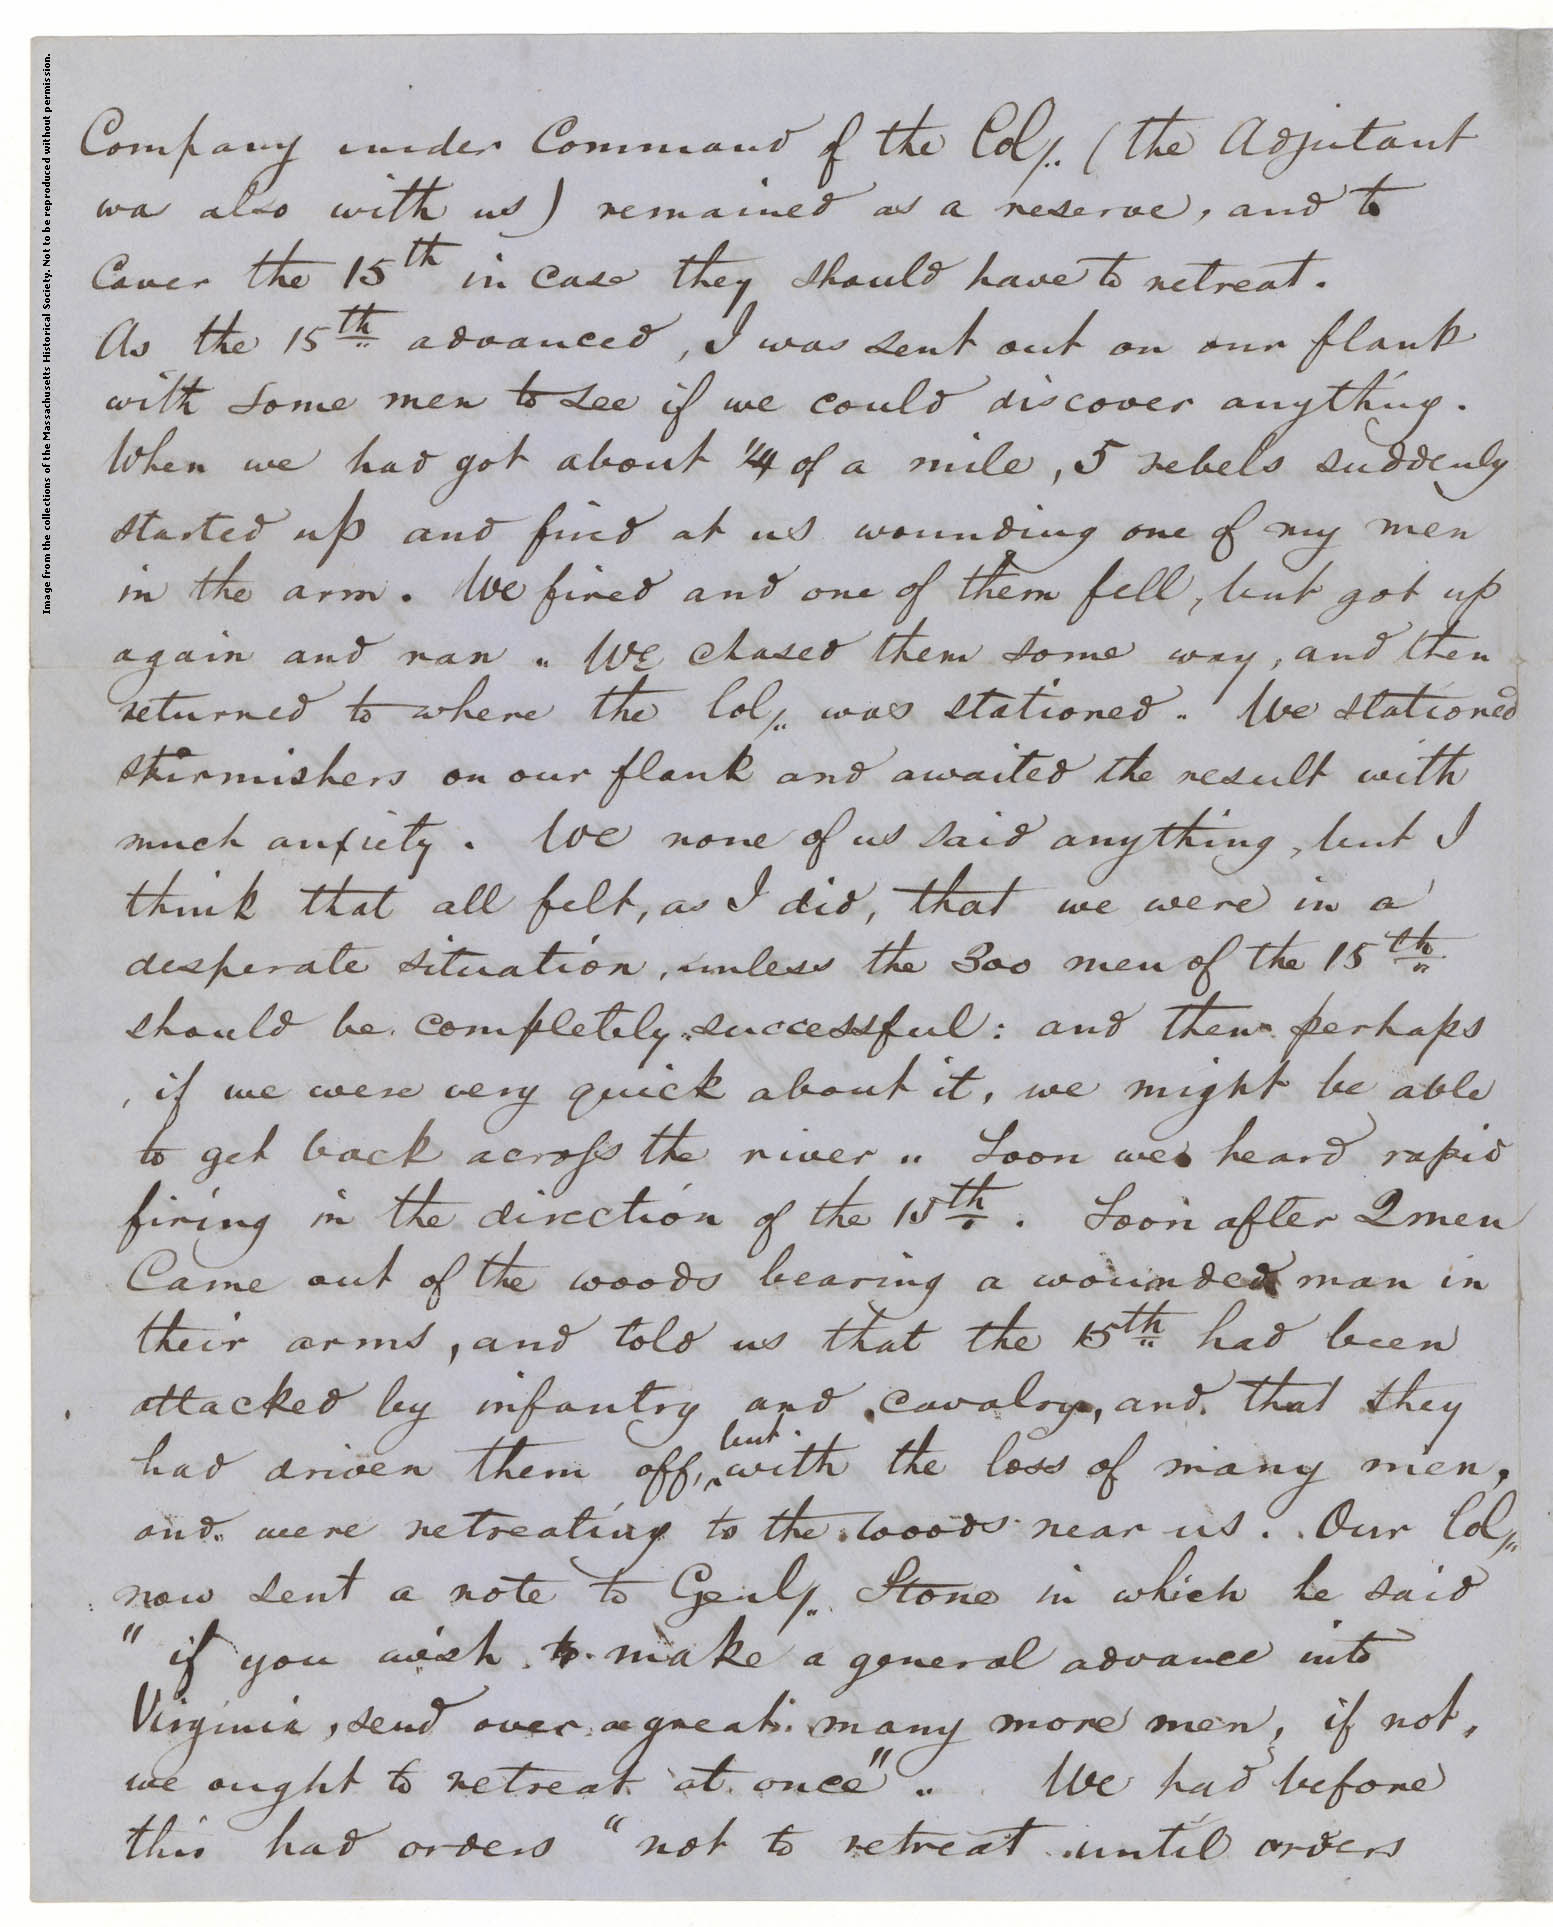 Image from the collections of the Massachusetts Historical Society. Not to be reproduced without permission.
Company under Command of the Col. (the Adjutant
wa also with us) remained as a reserve, and to
Cover the 15th in case they should have to retreat.
As the 15th advanced, I was sent out on our flank
with some men to see if we could discover anything.
When we had got about 1/4 of a mile, 5 rebels suddenly
started up and fired at us wounding one of my men
in the arm. We fired and one of them fell, but got up
again and ran. We chased them some way, and then
returned to where the Col. was stationed. We stationed
skirmishers on our flank and awaited the result with
much anxiety. We none of us said anything, but I
think that all felt, as I did, that we were in a
desperate situation, unless the 300 men of the 15th
should be completely successful: and then perhaps
, if we were very quick about it, we might be able
to get back across the river. Soon we heard rapid
firing in the direction of the 15th. Soon after 2 men
Came out of the woods bearing a wounded man in
their arms, and told us that the 15th had been
attacked by infantry and cavalry, and that they
had driven them off, but with the loss of many men,
and were retreating to the woods near us. Our Col.
now sent a note to Genl. Stone in which he said
"if you wish to make a general advance into
Virginia, send over a great many more men, if not,
we ought to retreat at once". We had before
this had orders "not to retreat until orders